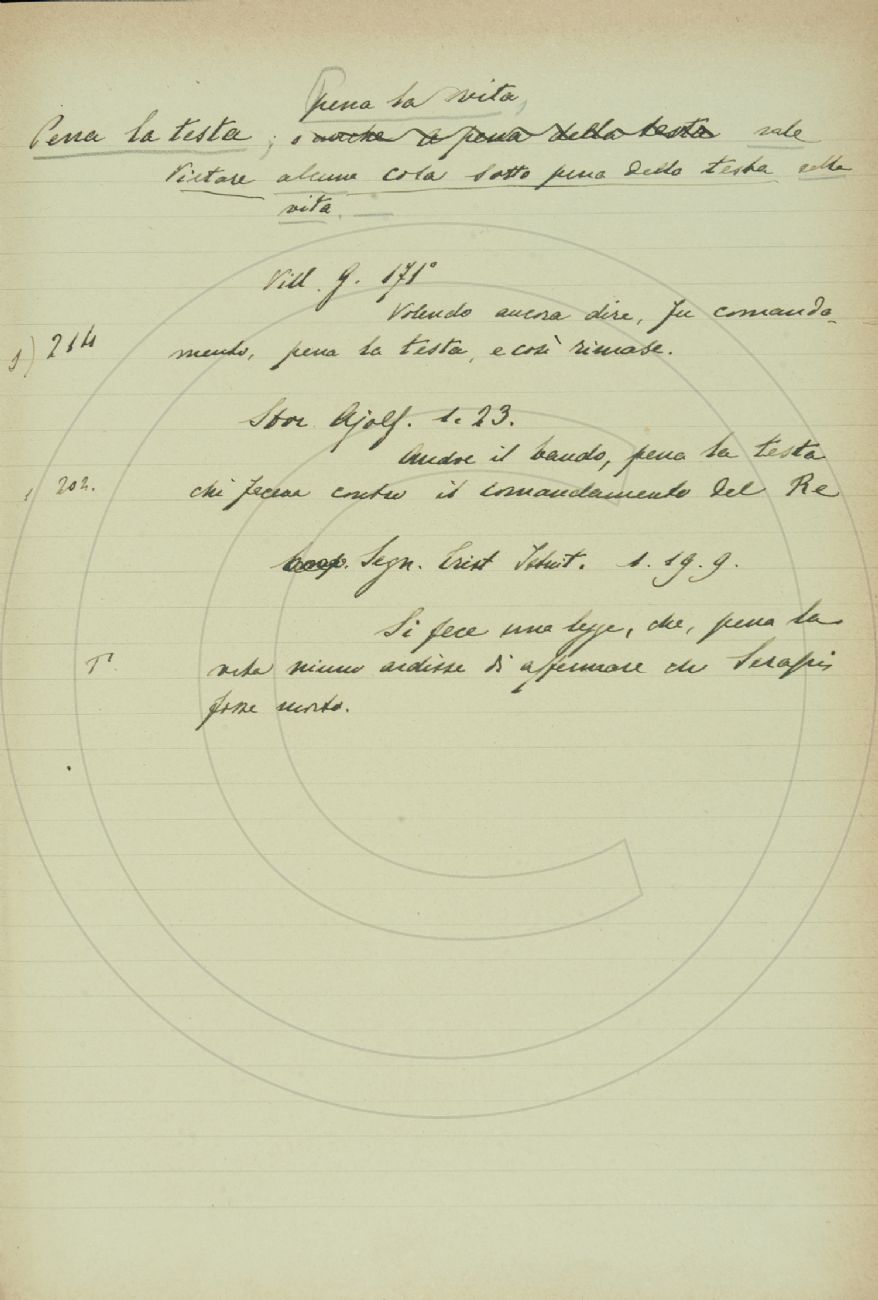 pena la vita,
Pena la testa ; o anche a pena della testa vale
Vietare alcuna cosa sotto pena della testa della
vita.
Vill. G. 171°
Volendo ancora dire, fu comanda-
214 mento, pena la testa, e così rimase.
Stor. Ajolf. 1. 23.
Andre il bando, pena la testa
202. chi facea contro il comandamento del Re
Segn. Crist. Istruit. 1. 19. 9.
Si fece una legge, che, pena la
T° vita niuno ardisse di affermare che Serapis
fosse morto.